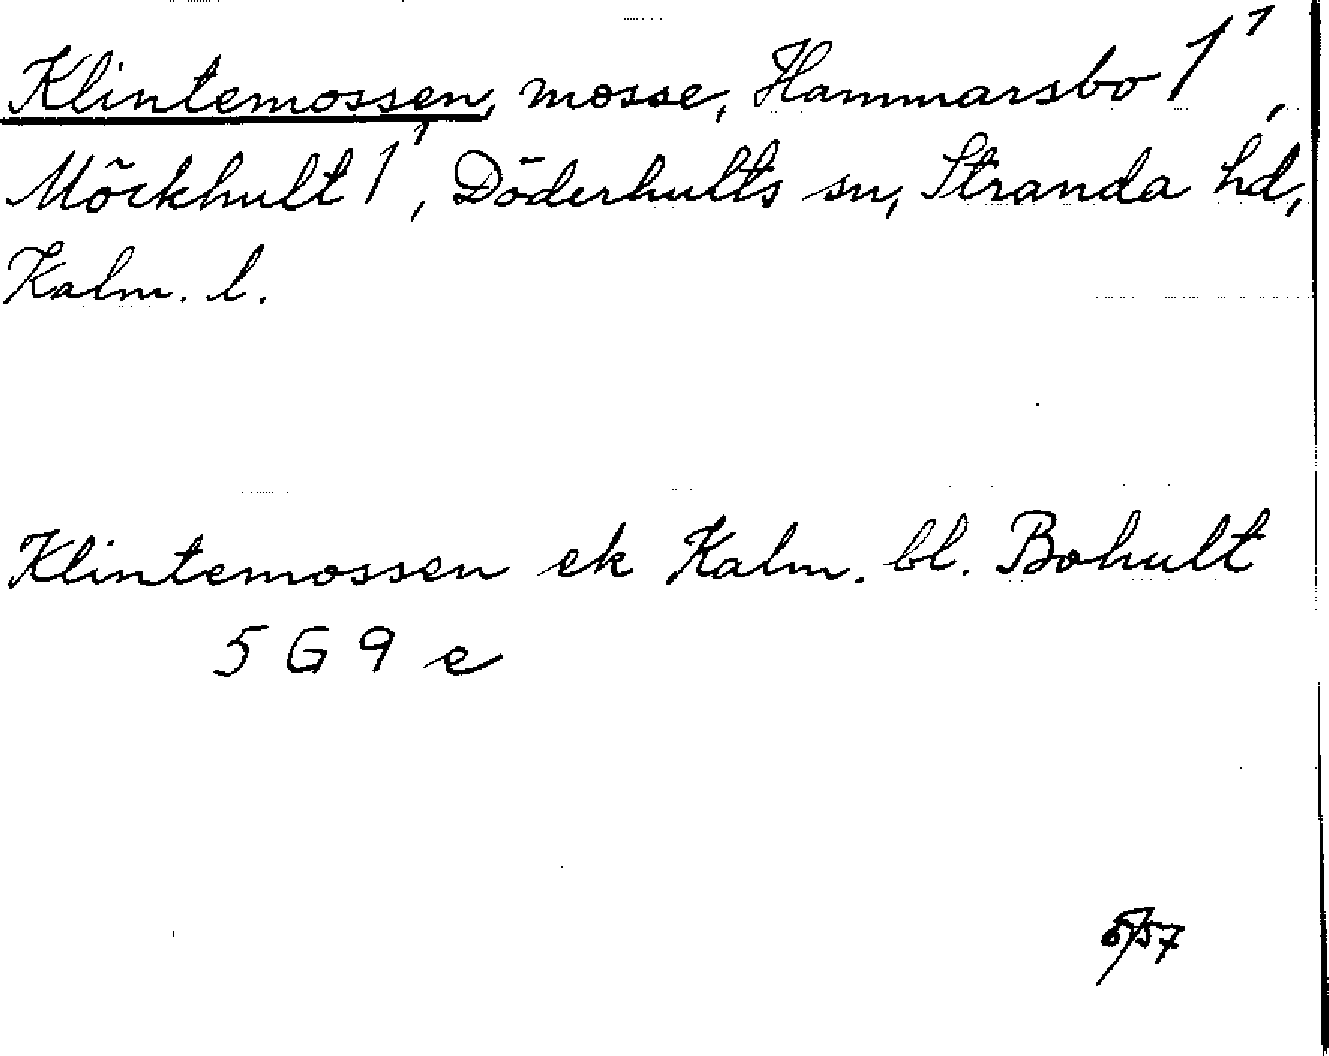 Klintemossen, mosse, Hammarsbo 1¹,
Möckhult 1¹, Döderhults sn, Stranda hd,
Kalm. l.
Klintemossen ek Kalm. bl. Bohult
5 G 9 e